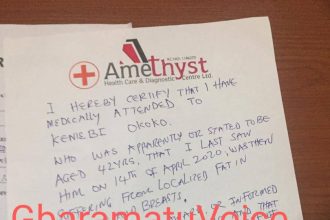 Amethyst
Health Care & Diagnostic Centre Ltd.
I HEREBY CERTIFY THAT I HAVE
MEDICALLY ATTENDED TO
KENIEBI OKOKO.
WHO WAS APPARENTLY OR STATED TO BE
AGED 42YRS, THAT I LAST SAW
HIM ON 14TH OF APRIL 2020, WAS THEN
SUFFERING FROM LOCALIZED FAT IN
BREASTS.
OR INFORMED
AND THAT
GbaramatuVoice